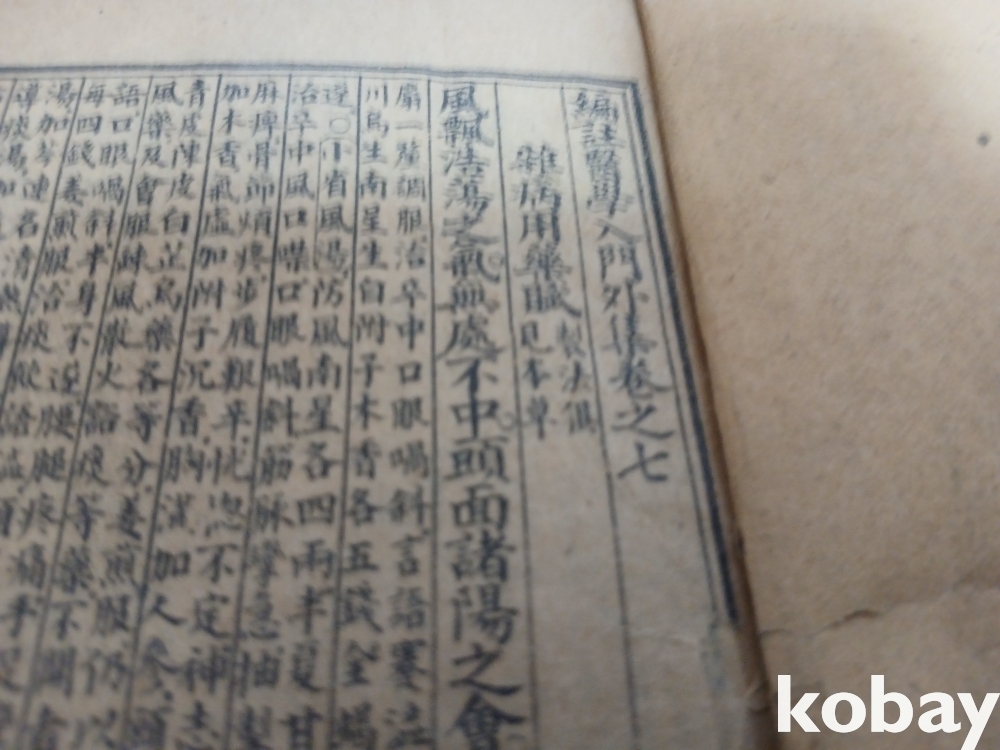 編註醫學入門外集卷之七
雜病用藥賦
製法俱
見本草
風飄浩蕩之氣無處不中頭面諸陽之會
調服治卒中口眼喎斜言語蹇澁
川烏生南星生白附子木香各五錢全蝎
〇小省風湯防風南星各四兩半夏甘
治卒中風口噤口眼喎斜筋脉攣急抽掣
麻痺骨節煩疼步履艱辛恍惚不定神志
加木香氣虛加附子沉香胸滿加人參
青皮陳皮白芷烏藥各等分姜煎服仍以
風藥及會服疎風散火豁痰等藥不開者
語口眼喎斜半身不遂腰腿疼痛手足
每四錢姜煎服治痰厥語澁
湯加芩連名清
導痰湯加
kobay